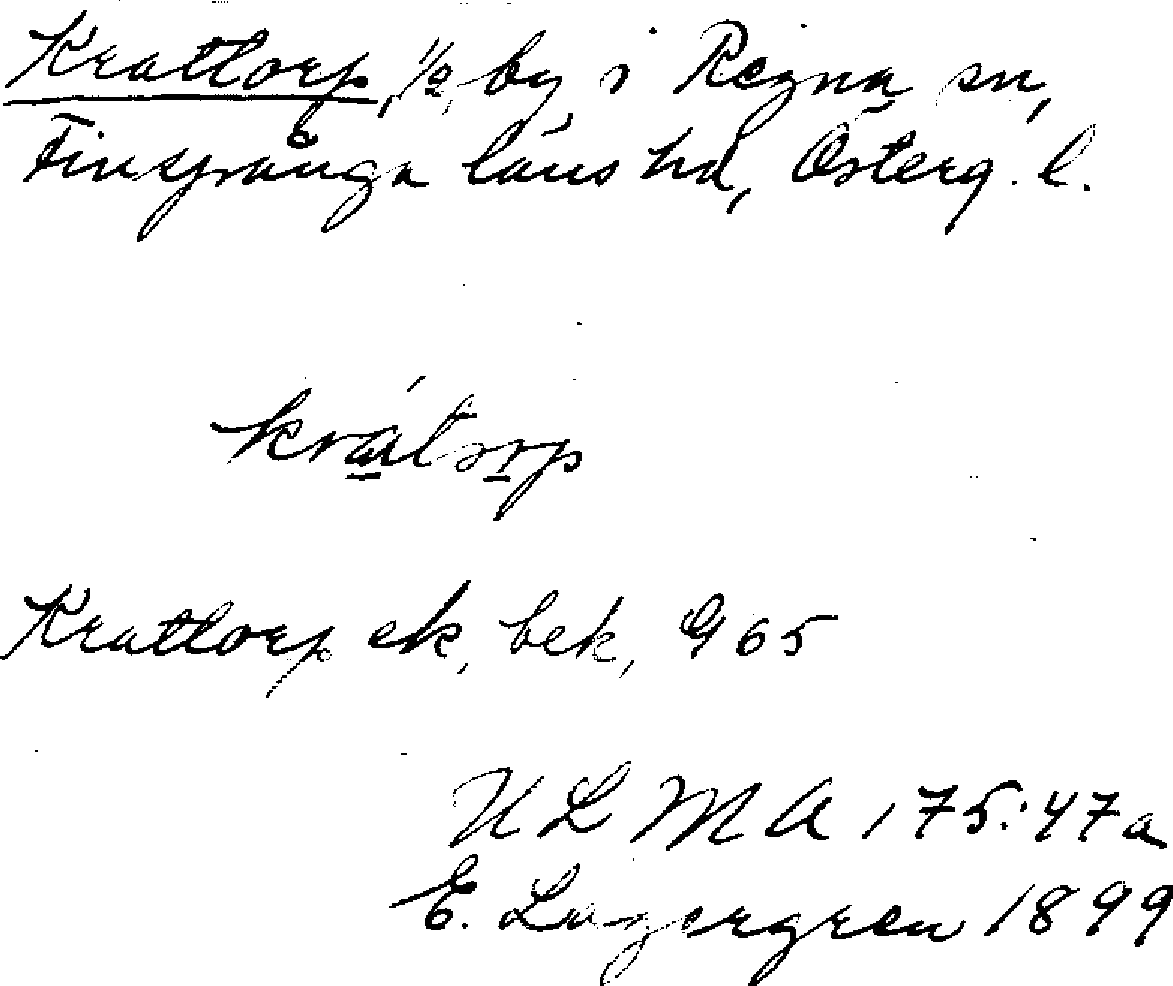 Krattorp, 1/2, by i Regna sn,
Finspånga läns hd, Österg. l.
kràtorp
Krattorp ek, bek, G 65
ULMA 175:47a
E. Lagergren 1899